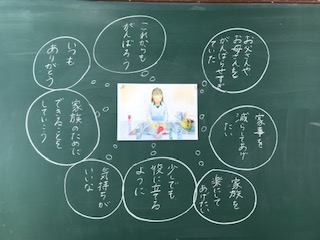 お父さんや
お母さんを
がんばらせすぎ
ていた
家事を
減らしてあげ
たい
家族を
楽にして
あげたい
少しでも
役に立てる
ように
気持ちが
いいな
家族のために
できることを
していこう
いつも
ありがとう
これからも
がんばろう